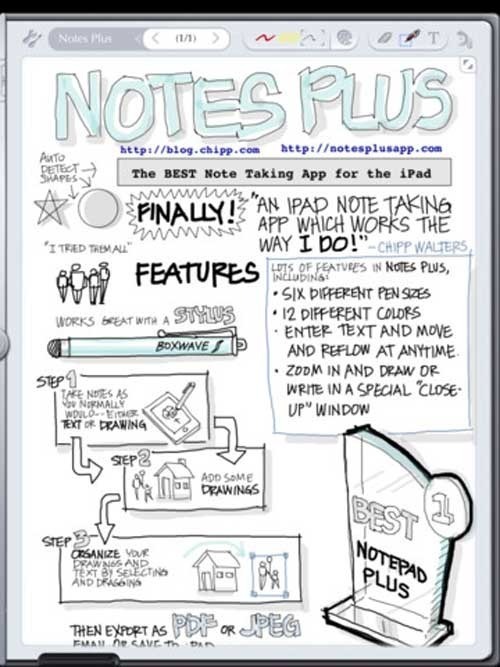 Notes Plus
(1/1)
T
NOTES PLUS
http://blog.chipp.com http://notesplusapp.com
AUTO
DETECT
SHAPES
The BEST Note Taking App for the iPad
FINALLY!
"AN IPAD NOTE TAKING
APP WHICH WORKS THE
WAY I DO!" -CHIPP WALTERS
"I TRIED THEM ALL"
FEATURES
LOTS OF FEATURES IN NOTES PLUS,
INCLUDING:
• SIX DIFFERENT PEN SIZES
• 12 DIFFERENT COLORS
• ENTER TEXT AND MOVE
AND REFLOW AT ANYTIME.
• ZOOM IN AND DRAW OR
WRITE IN A SPECIAL "CLOSE-
UP" WINDOW
WORKS GREAT WITH A STYLUS
BOXWAVE
STEP 1
TAKE NOTES AS
YOU NORMALLY
WOULD-- EITHER
TEXT OR DRAWING
STEP 2
ADD SOME
DRAWINGS
STEP 3
ORGANIZE YOUR
DRAWINGS AND
TEXT BY SELECTING
AND DRAGGING
BEST
1
NOTEPAD
PLUS
THEN EXPORT AS PDF OR JPEG
EMAIL OR SAVE TO IPAD